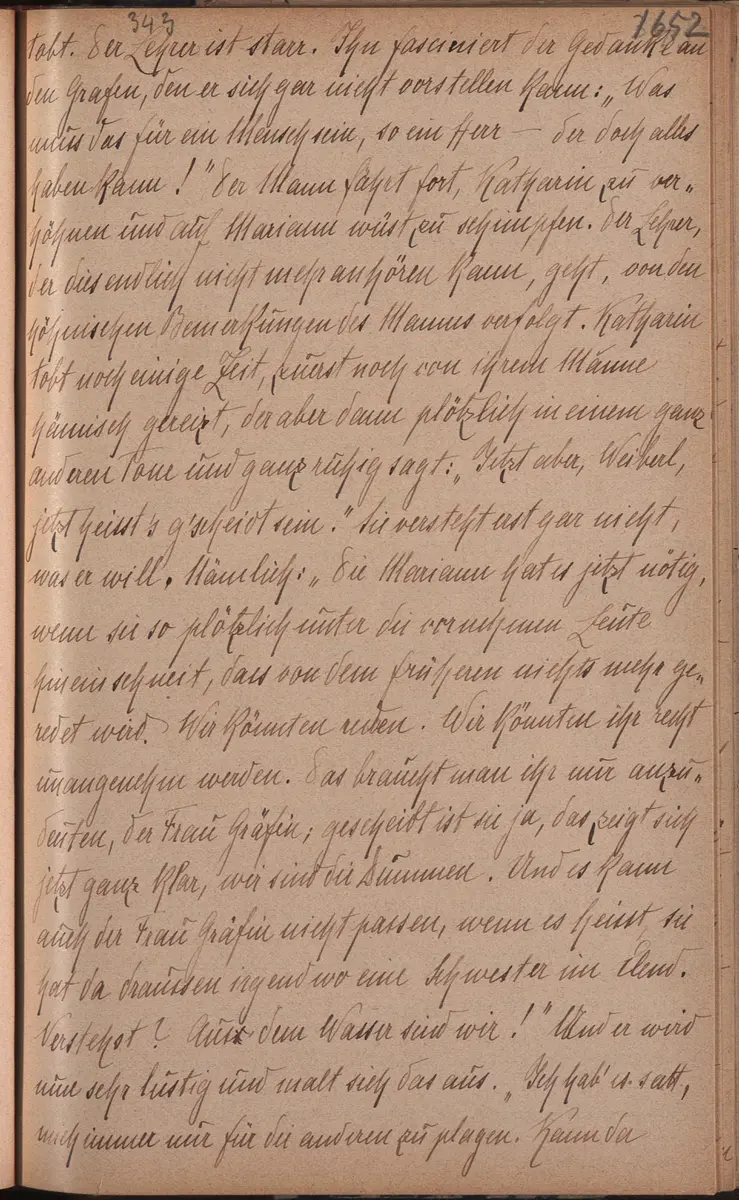 343
1652
tobt. Der Lehrer ist starr. Ihn fasciniert der Gedanke an
den Grafen, den er sich gar nicht vorstellen kann: „Was
muss das für ein Mensch sein, so ein Herr – der doch alles
haben kann!" Der Mann fährt fort, Katharin zu ver„
höhnen und auf Mariann wüst zu schimpfen. Der Lehrer,
der dies endlich nicht mehr anhören kann, geht, von den
höhnischen Bemerkungen des Mannes verfolgt. Katharin
tobt noch einige Zeit, zuerst noch von ihrem Manne
hämisch gereizt, der aber dann plötzlich in einem ganz
anderen Tone und ganz ruhig sagt: „Jetzt aber, Weiberl,
jetzt heisst's g'scheidt sein." Sie versteht erst gar nicht,
was er will. Nämlich: „Die Mariann hat es jetzt nötig,
wenn sie so plötzlich unter die vornehmen Leute
hineinschneit, dass von dem früheren nichts mehr ge„
redet wird. Wir könnten reden. Wir könnten ihr recht
unangenehm werden. Das braucht man ihr nur anzu„
deuten, der Frau Gräfin; gescheidt ist sie ja, das zeigt sich
jetzt ganz klar, wir sind die Dummen. Und es kann
auch der Frau Gräfin nicht passen, wenn es heisst, sie
hat da draussen irgendwo eine Schwester im Elend.
Verstehst? Aus dem Wasser sind wir!" Und er wird
nun sehr lustig und malt sich das aus. „Ich hab' es satt,
mich immer nur für die anderen zu plagen. Kann da